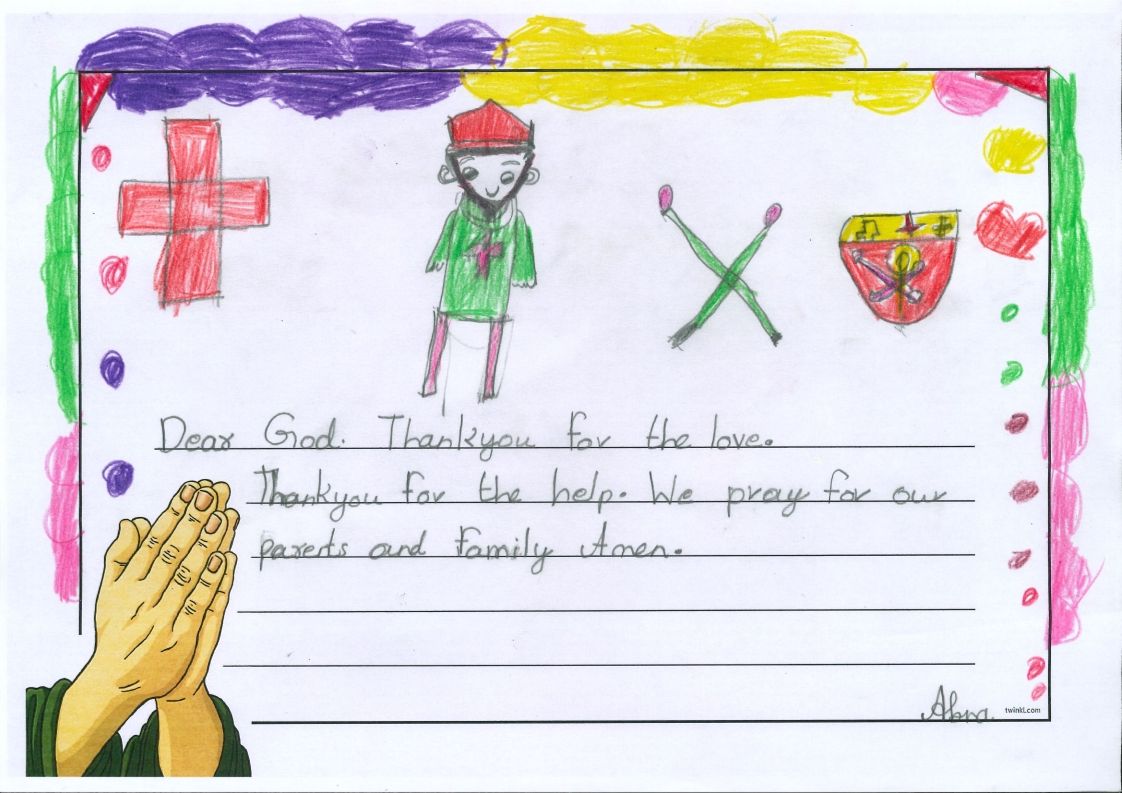 Dear God. Thankyou for the love.
Thankyou for the help. We pray for our
parents and family Amen.
twinkl.com